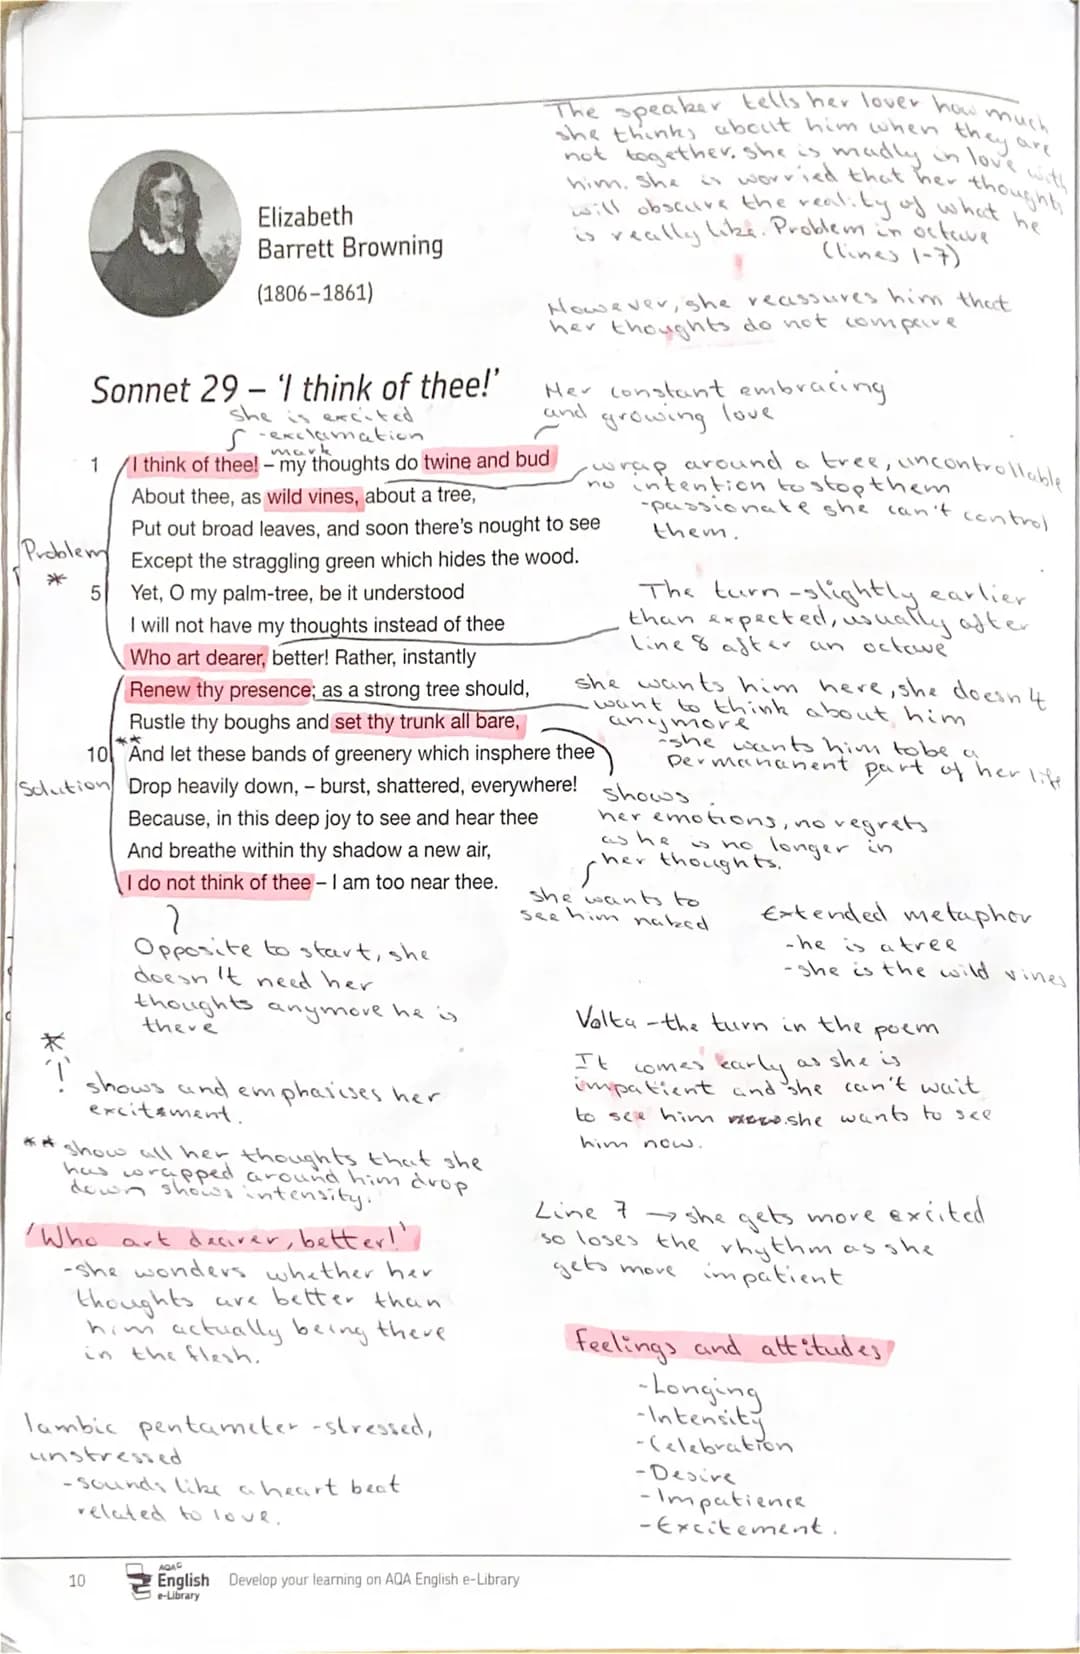 The speaker tells her lover how much
she thinks about him when they are
not together. she is madly in love with
him. She is worried that her thoughts
will obscure the reality of what he
is really like. Problem in octave
(lines 1-7)
Elizabeth
Barrett Browning
(1806–1861)
However, she reassures him that
her thoughts do not compare
Sonnet 29 – 'I think of thee!'
Her constant embracing
and growing love
she is excited
-exclamation
mark
1 I think of thee! – my thoughts do twine and bud
wrap around a tree, uncontrollable
no intention to stop them
-passionate she can't control
them.
About thee, as wild vines, about a tree,
Put out broad leaves, and soon there's nought to see
Problem
*
Except the straggling green which hides the wood.
5 Yet, O my palm-tree, be it understood
The turn - slightly earlier
than expected, usually after
line 8 after an octave
I will not have my thoughts instead of thee
Who art dearer, better! Rather, instantly
Renew thy presence; as a strong tree should,
she wants him here, she doesn't
want to think about him
anymore
-she wants him to be a
permananent part of her life
Rustle thy boughs and set thy trunk all bare,
**
10 And let these bands of greenery which insphere thee
Solution
Drop heavily down, – burst, shattered, everywhere!
shows
her emotions, no regrets
as he is no longer in
her thoughts.
Because, in this deep joy to see and hear thee
And breathe within thy shadow a new air,
I do not think of thee – I am too near thee.
she wants to
see him naked
Extended metaphor
-he is a tree
-she is the wild vines
Opposite to start, she
doesn't need her
thoughts anymore he is
there
Volta - the turn in the poem
It comes early as she is
impatient and she can't wait
to see him now. she wants to see
him now.
*
'!'
shows and emphasises her
excitement.
** show all her thoughts that she
has wrapped around him drop
down shows intensity.
Line 7 → she gets more excited
so loses the rhythm as she
gets more impatient
'Who art dearer, better!'
-she wonders whether her
thoughts are better than
him actually being there
in the flesh.
Feelings and attitudes
-Longing
-Intensity
-Celebration
-Desire
-Impatience
-Excitement.
Iambic pentameter - stressed,
unstressed
-sounds like a heart beat
related to love.
10
AQA
English
e-Library
Develop your learning on AQA English e-Library